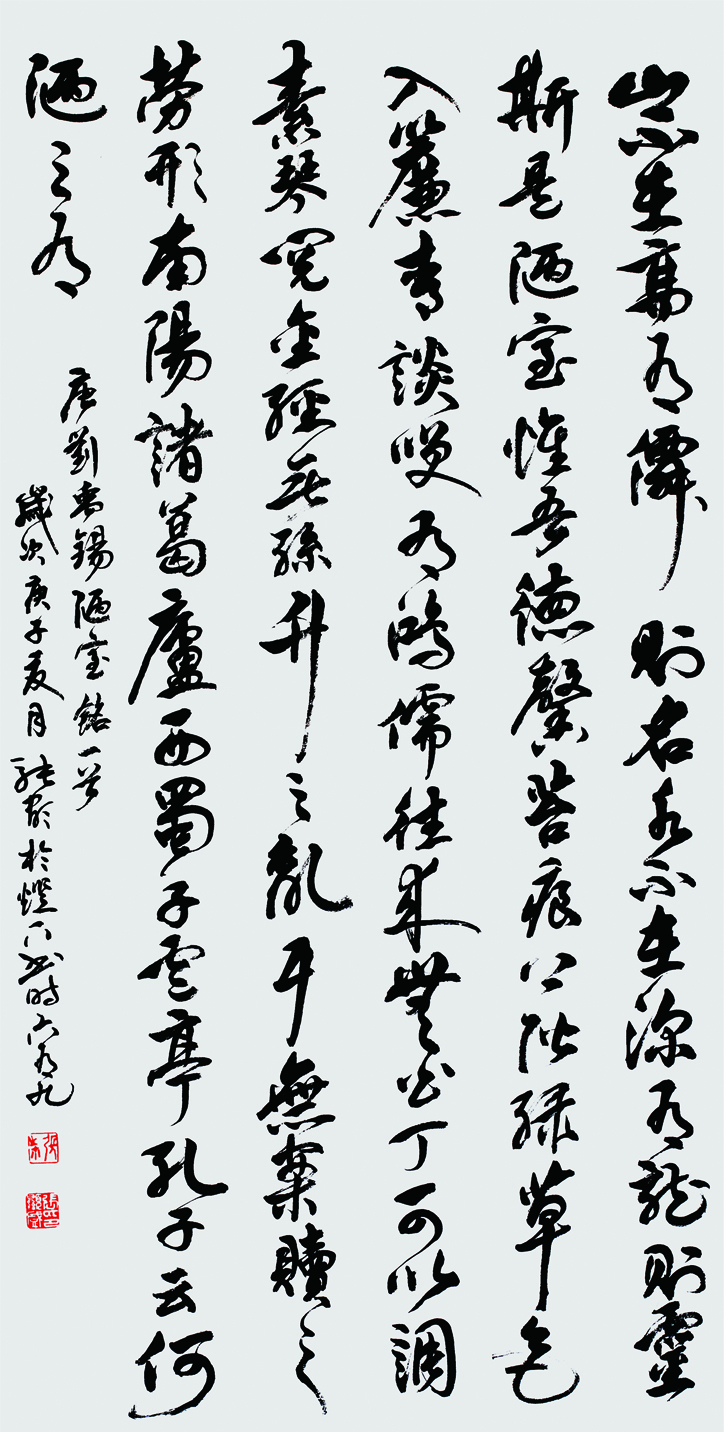 山不在高有僊則名水不在深有龍則靈
斯是陋室惟吾德馨苔痕上階緑草色
入簾青談笑有鴻儒往來無白丁可以調
素琴閲金經無絲竹之亂耳無案牘之
勞形南陽諸葛廬西蜀子雲亭孔子云何
陋之有
唐劉禹錫陋室銘一首
歲次庚子夏月張於燈下時六有九